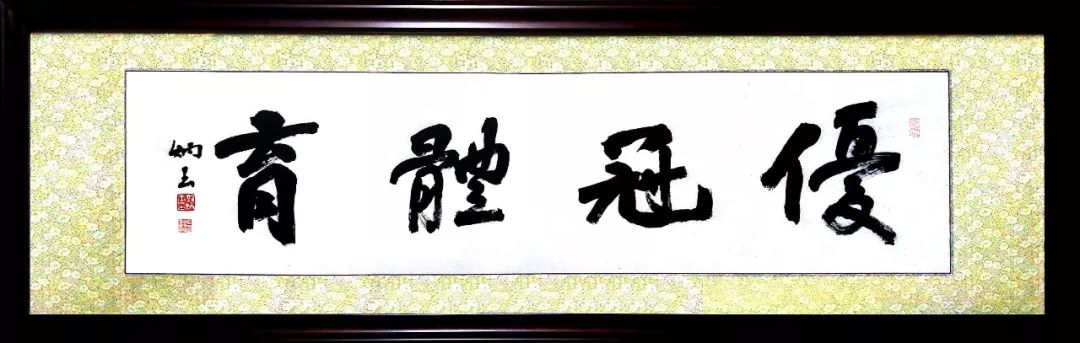 優冠體育
炳玉